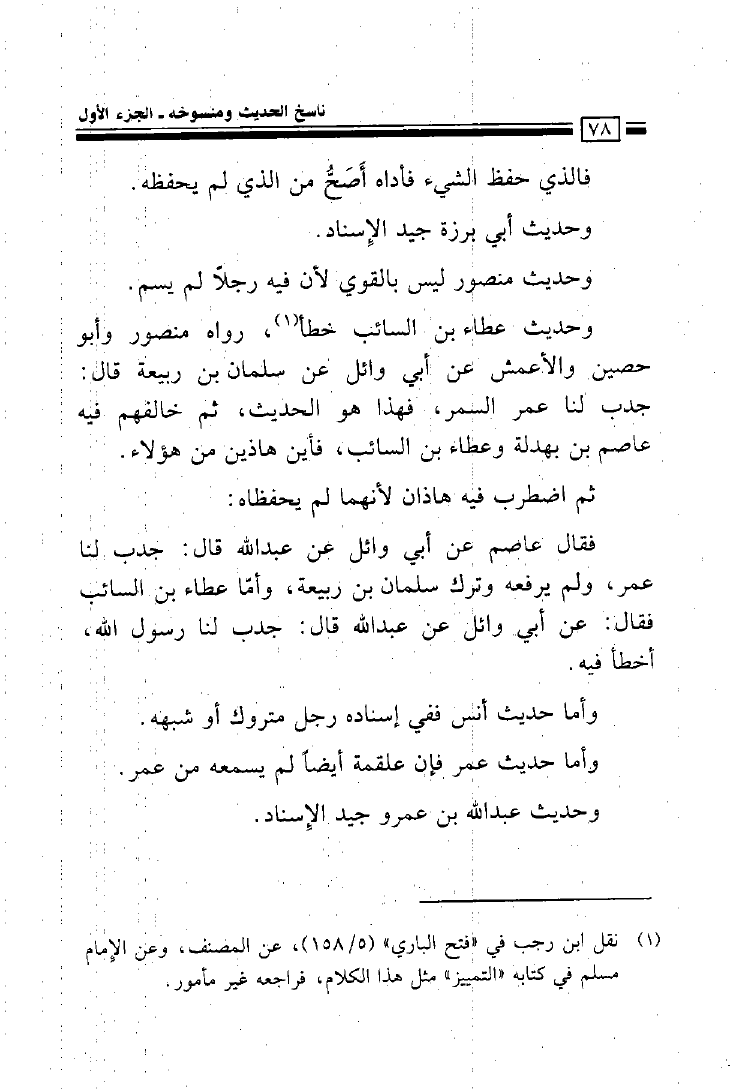 ناسخ الحديث ومنسوخه ـ الجزء الأول
٧٨
فالذي حفظ الشيء فأداه أَصَحُّ من الذي لم يحفظه.
وحديث أبي برزة جيد الإسناد.
وحديث منصور ليس بالقوي لأن فيه رجلاً لم يسم.
وحديث عطاء بن السائب خطأ(١)، رواه منصور وأبو
حصين والأعمش عن أبي وائل عن سلمان بن ربيعة قال:
جدب لنا عمر السمر، فهذا هو الحديث، ثم خالفهم فيه
عاصم بن بهدلة وعطاء بن السائب، فأين هاذين من هؤلاء.
ثم اضطرب فيه هاذان لأنهما لم يحفظاه:
فقال عاصم عن أبي وائل عن عبدالله قال: جدب لنا
عمر، ولم يرفعه وترك سلمان بن ربيعة، وأمّا عطاء بن السائب
فقال: عن أبي وائل عن عبدالله قال: جدب لنا رسول الله،
أخطأ فيه.
وأما حديث أنس ففي إسناده رجل متروك أو شبهه.
وأما حديث عمر فإن علقمة أيضاً لم يسمعه من عمر.
وحديث عبدالله بن عمرو جيد الإسناد.
(١) نقل ابن رجب في «فتح الباري» (١٥٨/٥)، عن المصنف، وعن الإمام
مسلم في كتابه «التمييز» مثل هذا الكلام، فراجعه غير مأمور.